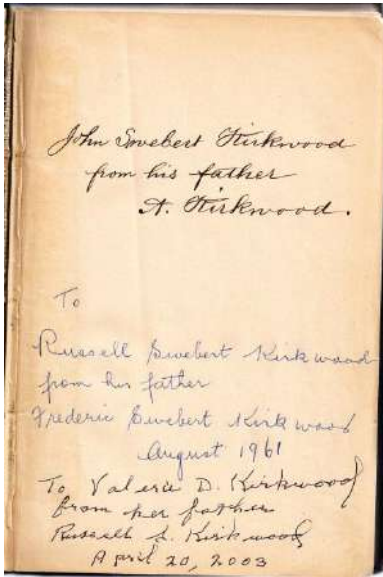 John Swebert Kirkwood
from his father
A. Kirkwood.
To
Russell Swebert Kirkwood
from his father
Frederic Swebert Kirkwood
August 1961
To Valerie D. Kirkwood
from her father
Russell S. Kirkwood
April 20, 2003